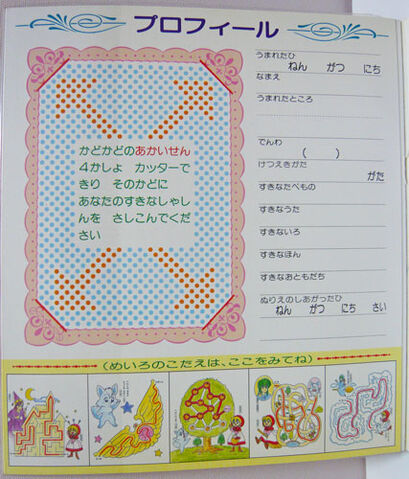 プロフィール
かどかどのあかいせん
4かしょ カッターで
きり そのかどに
あなたのすきなしゃし
んを さしこんでくだ
さい
うまれたひ
ねん がつ にち
なまえ
うまれたところ
でんわ
( )
けつえきがた
がた
すきなたべもの
すきなうた
すきないろ
すきなほん
すきなおともだち
ぬりえのしあがったひ
ねん がつ にち さい
(めいろのこたえは、ここをみてね)